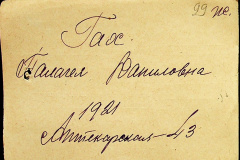 99 ж.
Гах.
Палагея Даниловна
1921
Аптекарская - 43